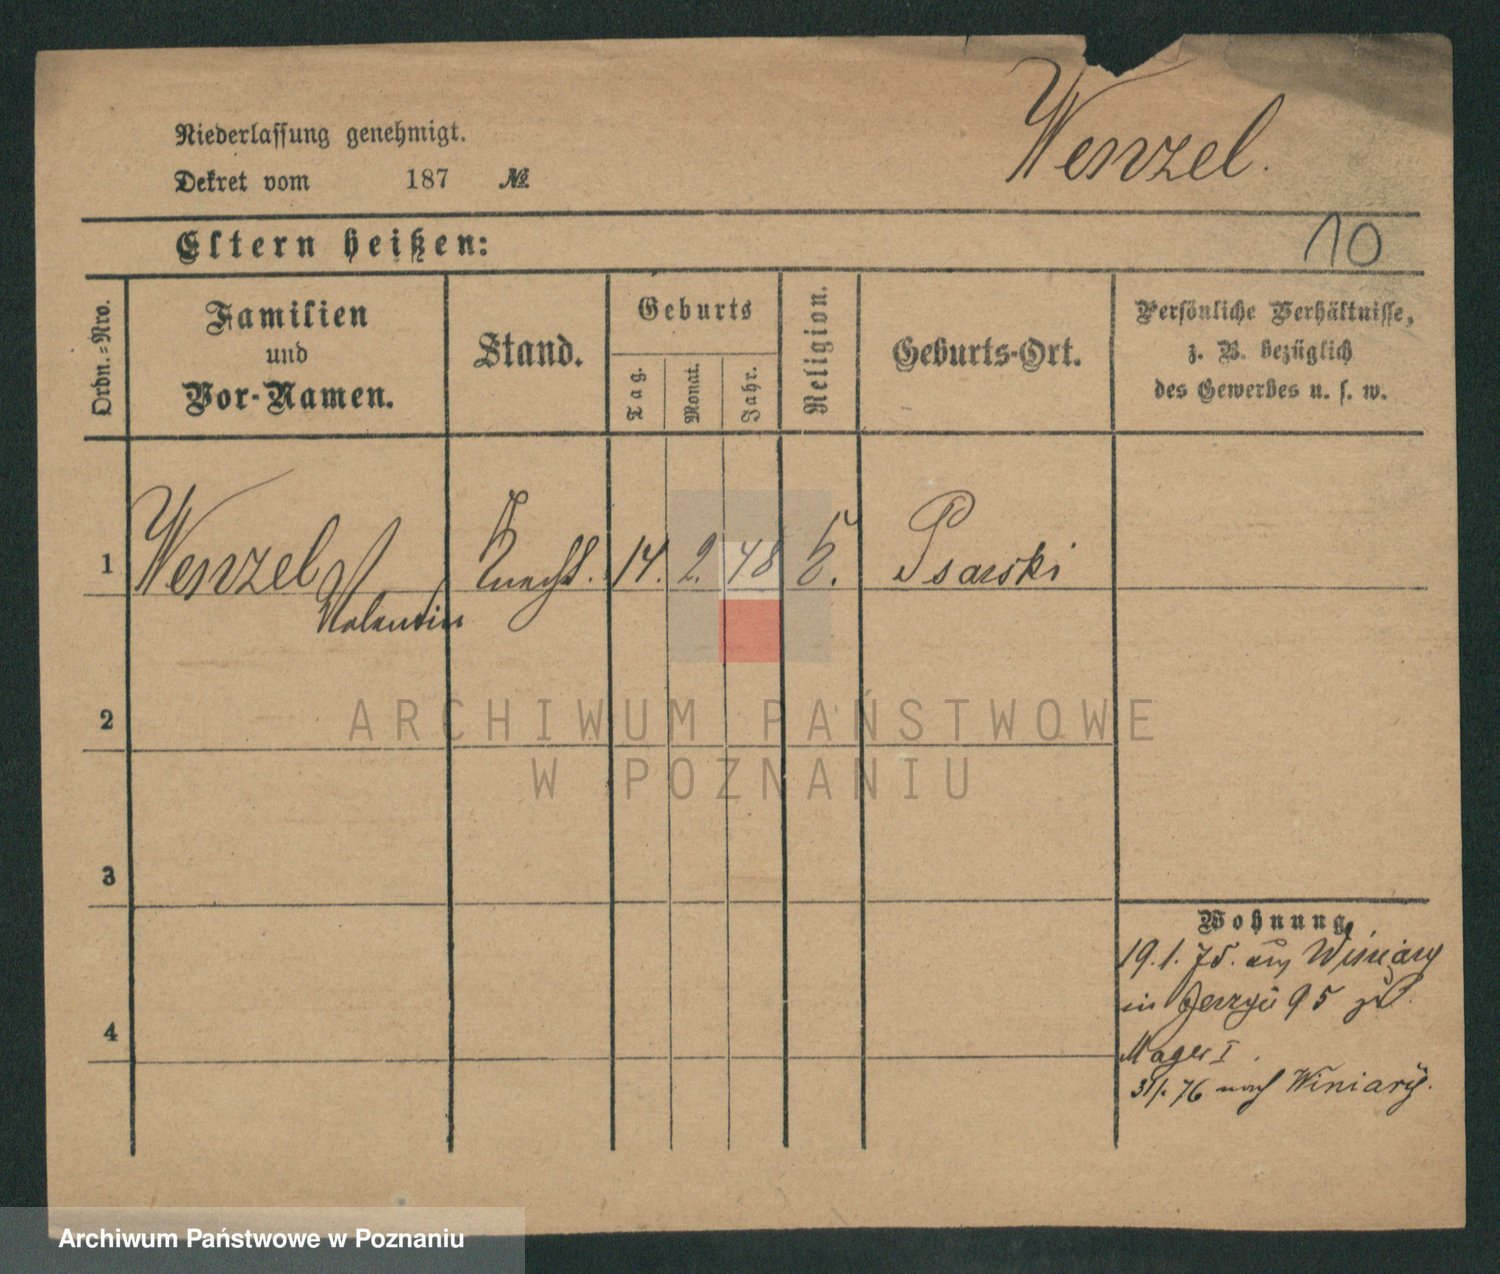 Wenzel.
Niederlassung genehmigt.
Dekret vom 187 №
10
Eltern heißen:
Ordn.-Nro.
Familien
und
Vor-Namen.
Stand.
Geburts
Tag.
Monat.
Jahr.
Religion.
Geburts-Ort.
Persönliche Verhältnisse,
z. B. bezüglich
des Gewerbes u. s. w.
1 Wenzel Knecht. 14. 2. 48 Psarski
Valentin
2
ARCHIWUM PAŃSTWOWE
W POZNANIU
3
Wohnung
19. 1. 75. aus Winiary
in 95 zu
Mager I.
31/. 76 nach Winiary.
4
Archiwum Państwowe w Poznaniu